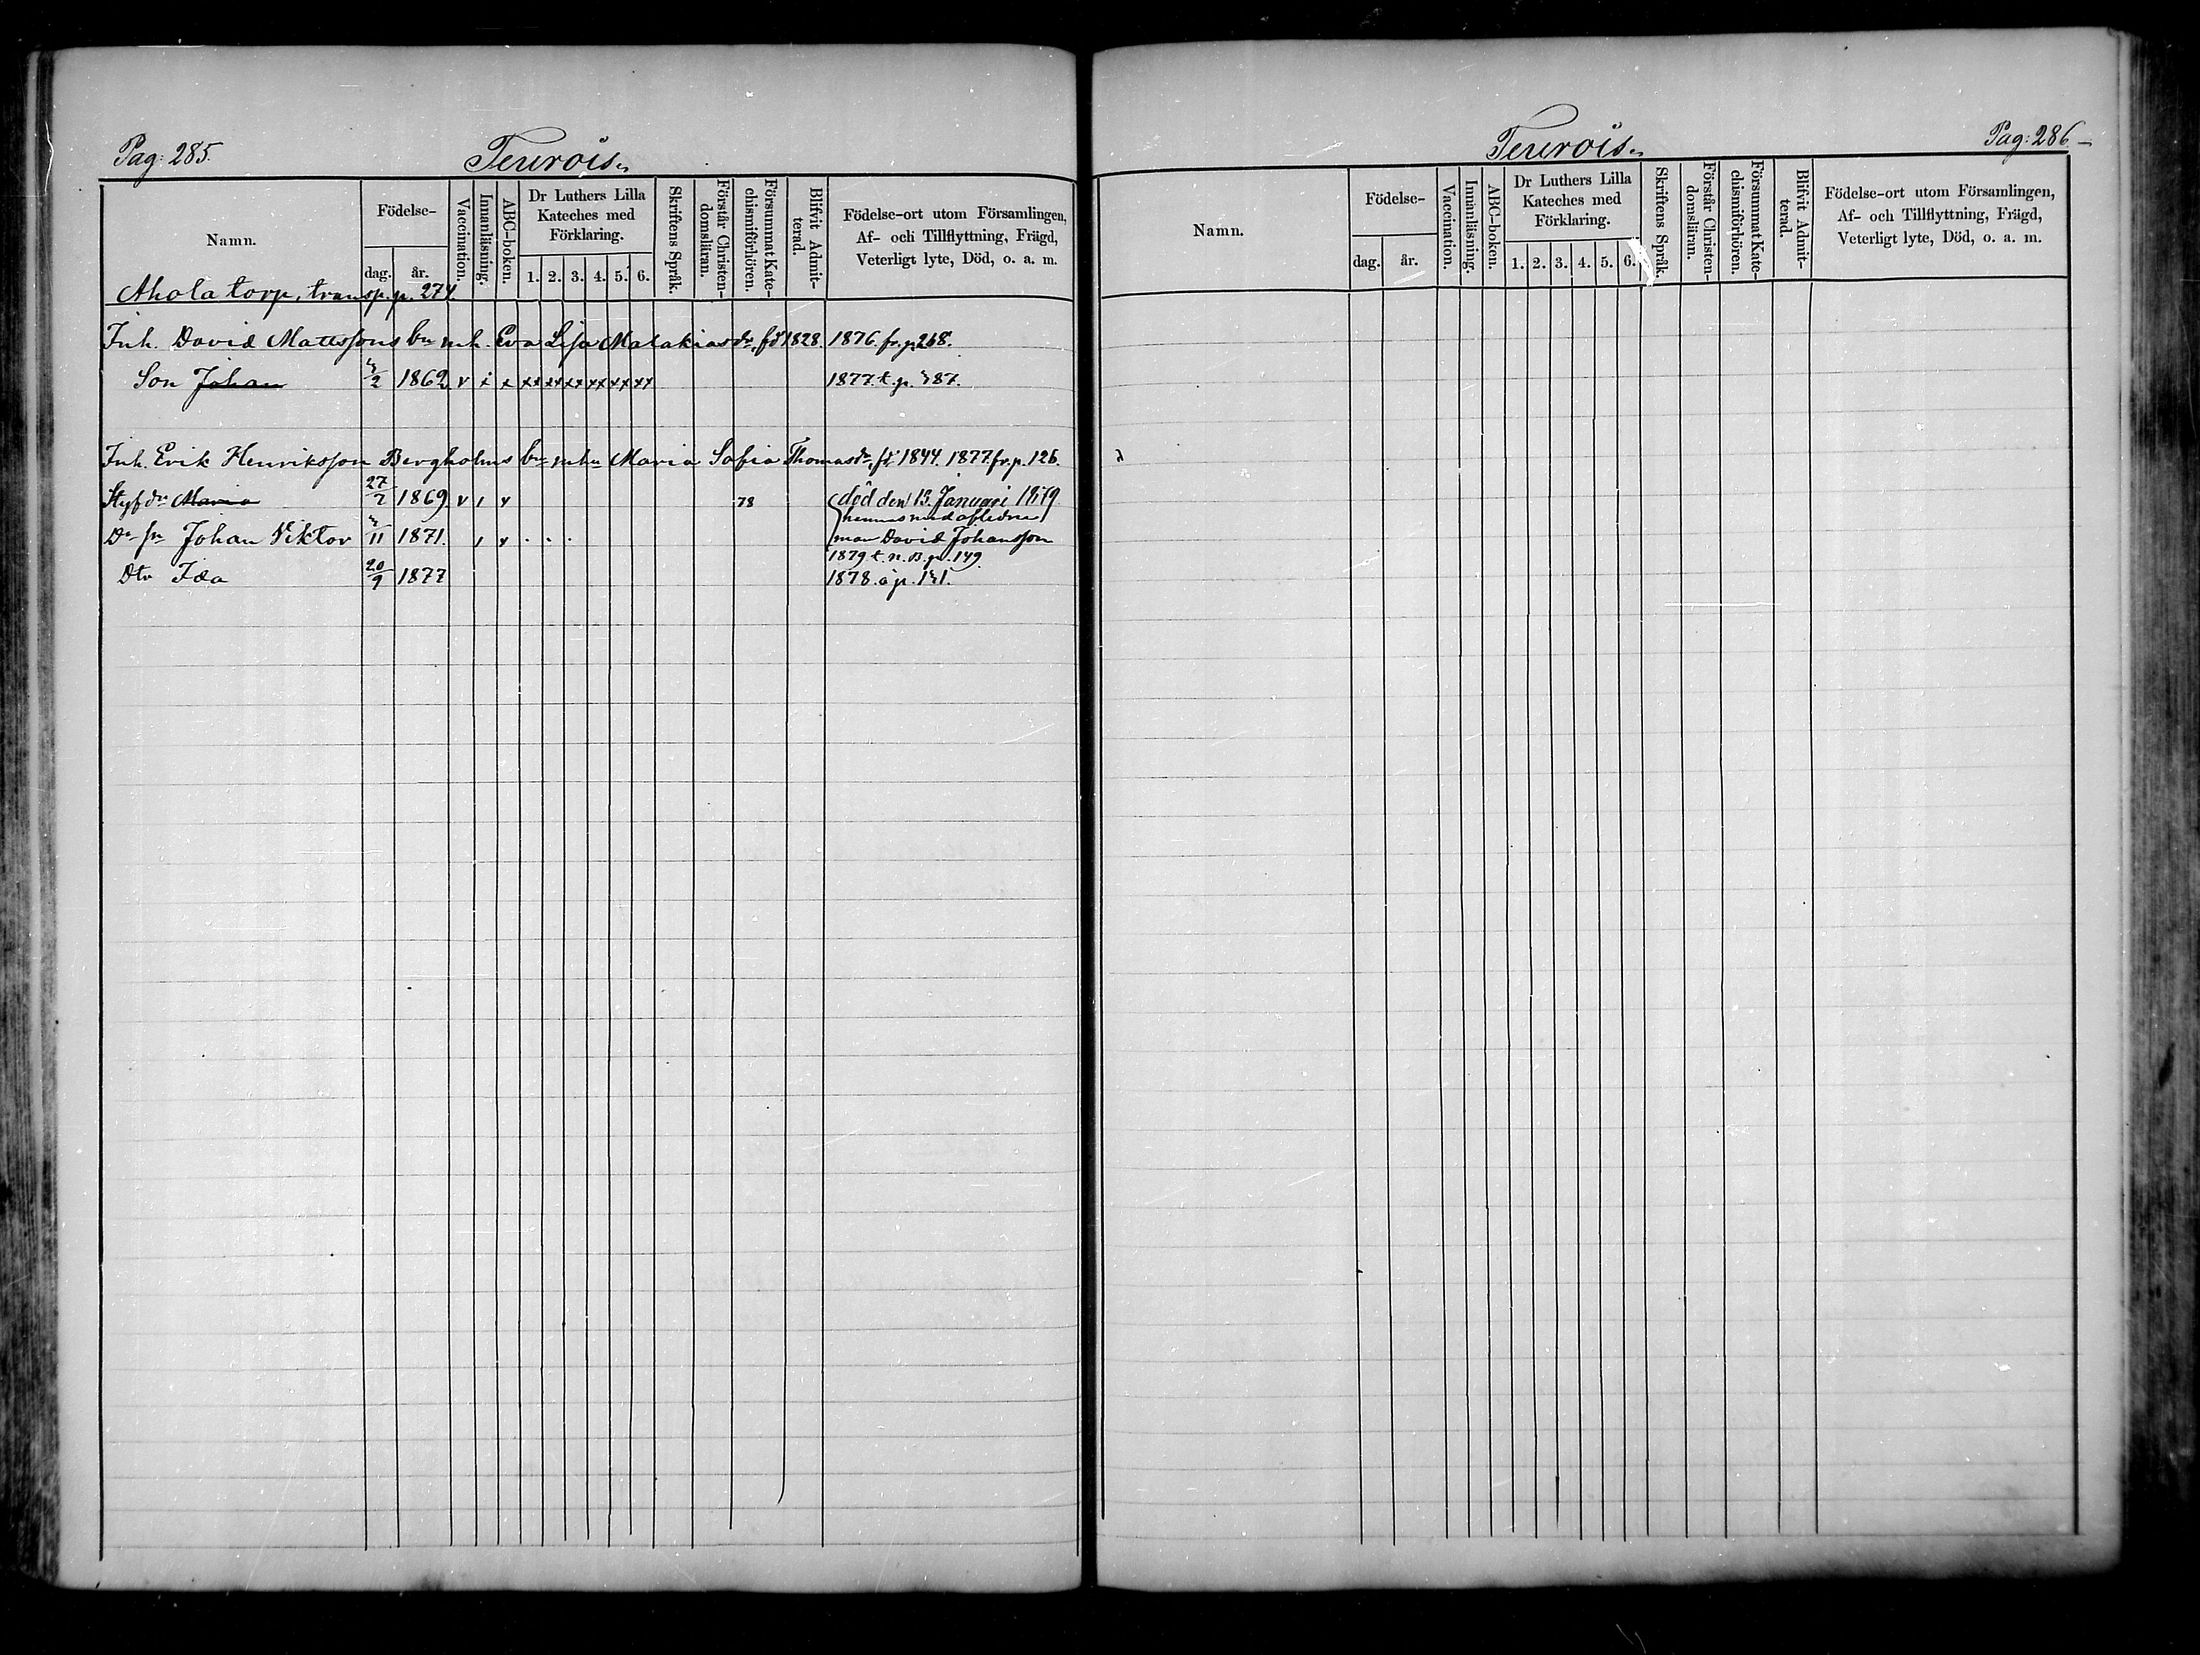 Pag: 285.
Teurois.
Namn.
Födelse-
dag.
år.
Vaccination.
Innanläsning.
ABC-boken.
Dr Luthers Lilla
Kateches med
Förklaring.
1. 2. 3. 4. 5. 6.
Skriftens Språk.
Förstår Christen-
domsläran.
Försummat Kate-
chismiförhören.
Blifvit Admit-
terad.
Födelse-ort utom Församlingen,
Af- och Tillflyttning, Frägd,
Veterligt lyte, Död, o. a. m.
Ahola torp, transp. p. 274.
Inh. David Mattssons bn m h. Eva Lisa Malakiasdr, fd 1828. 1876. fr. p. 268.
Son Johan 2 1862 v i x xx xx xx xx xx xx 1877. t. p. 87.
Inh. Erik Henriksson Bergholms bn m hu Maria Sofia Thomasdr, fd 1844. 1877 fr. p. 126.
Styfdr Maria 27/7 1869 v 1 x 78 död den 13. Januari 1879.
hennes med aflidne
Do sn Johan Viktor 11 1871. 1 x . . . man David Johansson
1879 t. n. B. p. 149.
Dtr Ida 20/9 1877 1878. å p.
Teurois.
Pag: 286.
Namn.
Födelse-
dag.
år.
Vaccination.
Innanläsning.
ABC-boken.
Dr Luthers Lilla
Kateches med
Förklaring.
1. 2. 3. 4. 5. 6.
Skriftens Språk.
Förstår Christen-
domsläran.
Försummat Kate-
chismiförhören.
Blifvit Admit-
terad.
Födelse-ort utom Församlingen,
Af- och Tillflyttning, Frägd,
Veterligt lyte, Död, o. a. m.